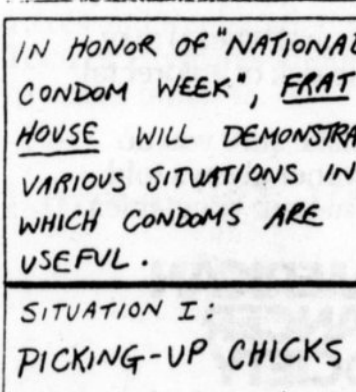 IN HONOR OF "NATIONAL
CONDOM WEEK", FRAT
HOUSE WILL DEMONSTRA
VARIOUS SITUATIONS IN
WHICH CONDOMS ARE
USEFUL.
SITUATION I:
PICKING-UP CHICKS